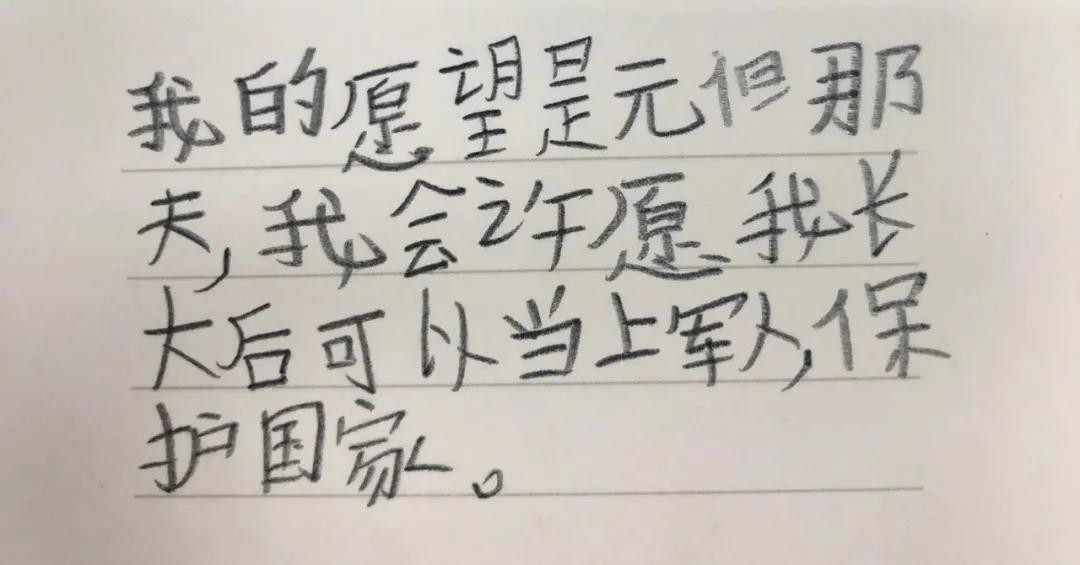 我的愿望是元但那
夫,我会许愿我长
大后可以当上军人,保
护国家。